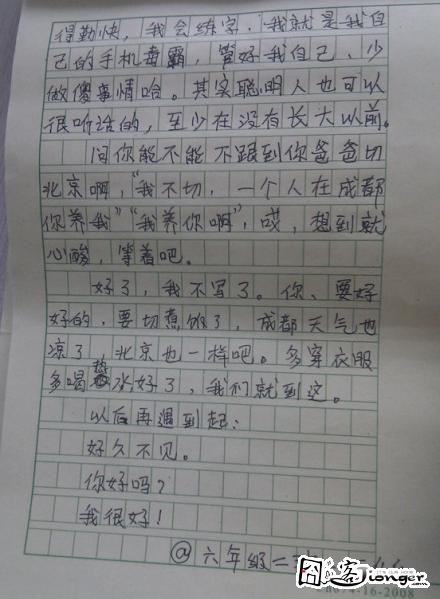 得勤快，我会练字，我就是我自
己的手机毒霸，管好我自己、少
做傻事情哈。其实聪明人也可以
很听话的，至少在没有长大以前。
问你能不能不跟到你爸爸切
北京啊，“我不切，一个人在成都
你养我”“我养你啊”，哎，想到就
心酸，等着吧。
好了，我不写了。你、要好
好的，要切煮饭了，成都天气也
凉了，北京也一样吧。多穿衣服
多喝热水好了，我们就到这。
以后再遇到起：
好久不见。
你好吗？
我很好！
@六年级二
囧之客 Jionger.com
-16-2008